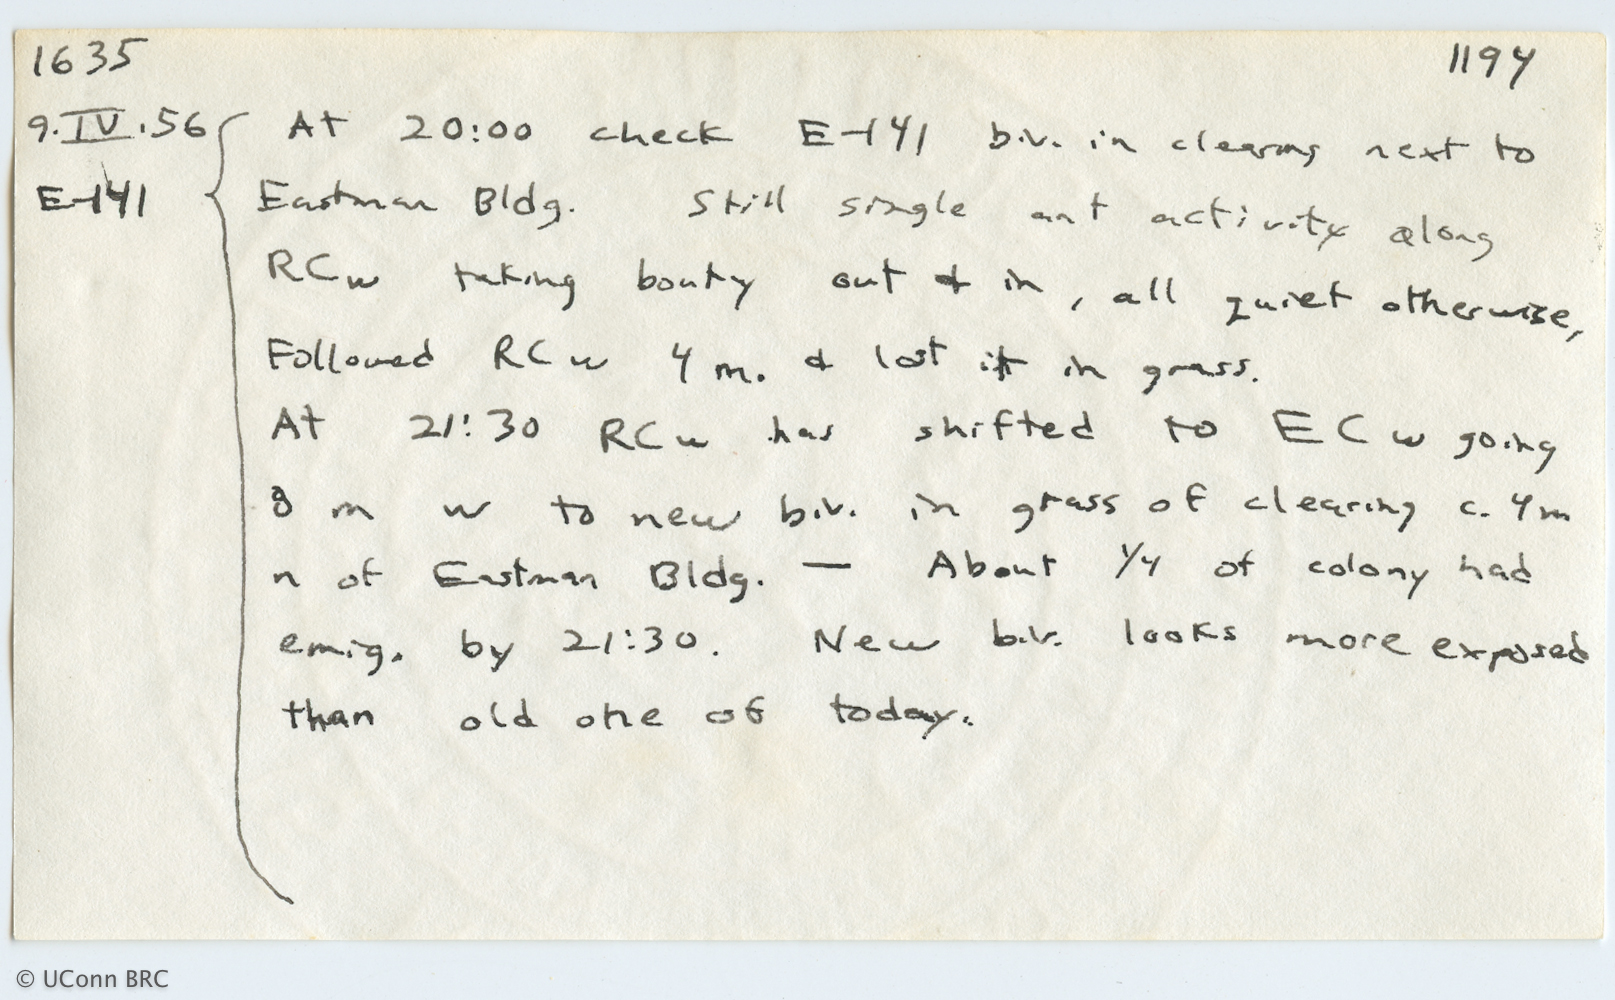 1635
1194
9.IV.56
E-141
At 20:00 check E-141 biv. in clearing next to
Eastman Bldg. Still single ant activity along
RCw taking booty out & in, all quiet otherwise,
Followed RCw 4 m. & lost it in grass.
At 21:30 RCw has shifted to ECw going
8 m w to new biv. in grass of clearing c. 4m
n of Eastman Bldg. — About 1/4 of colony had
emig. by 21:30. New biv. looks more exposed
than old one of today.
© UConn BRC